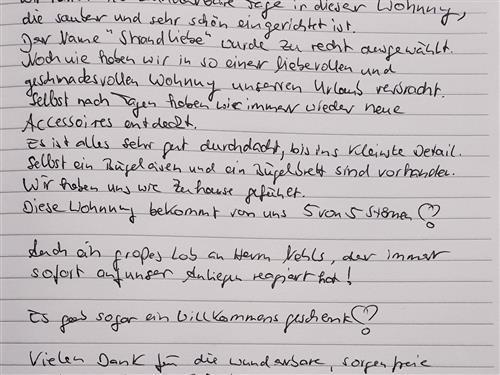 wunderbare Tage in dieser Wohnung,
die sauber und sehr schön eingerichtet ist.
Der Name "Strandliebe" wurde zu recht ausgewählt.
Noch nie haben wir in so einer liebevollen und
geschmacksvollen Wohnung unseren Urlaub verbracht.
Selbst nach Tagen haben wir immer wieder neue
Accessoires entdeckt.
Es ist alles sehr gut durchdacht, bis ins kleinste Detail.
Selbst ein Bügeleisen und ein Bügelbrett sind vorhanden.
Wir haben uns wie Zuhause gefühlt.
Diese Wohnung bekommt von uns 5 von 5 Sternen
Auch ein großes Lob an Herrn, der immer
sofort auf unser Anliegen reagiert hat!
Es gab sogar ein Willkommensgeschenk
Vielen Dank für die wunderbare, sorgenfreie